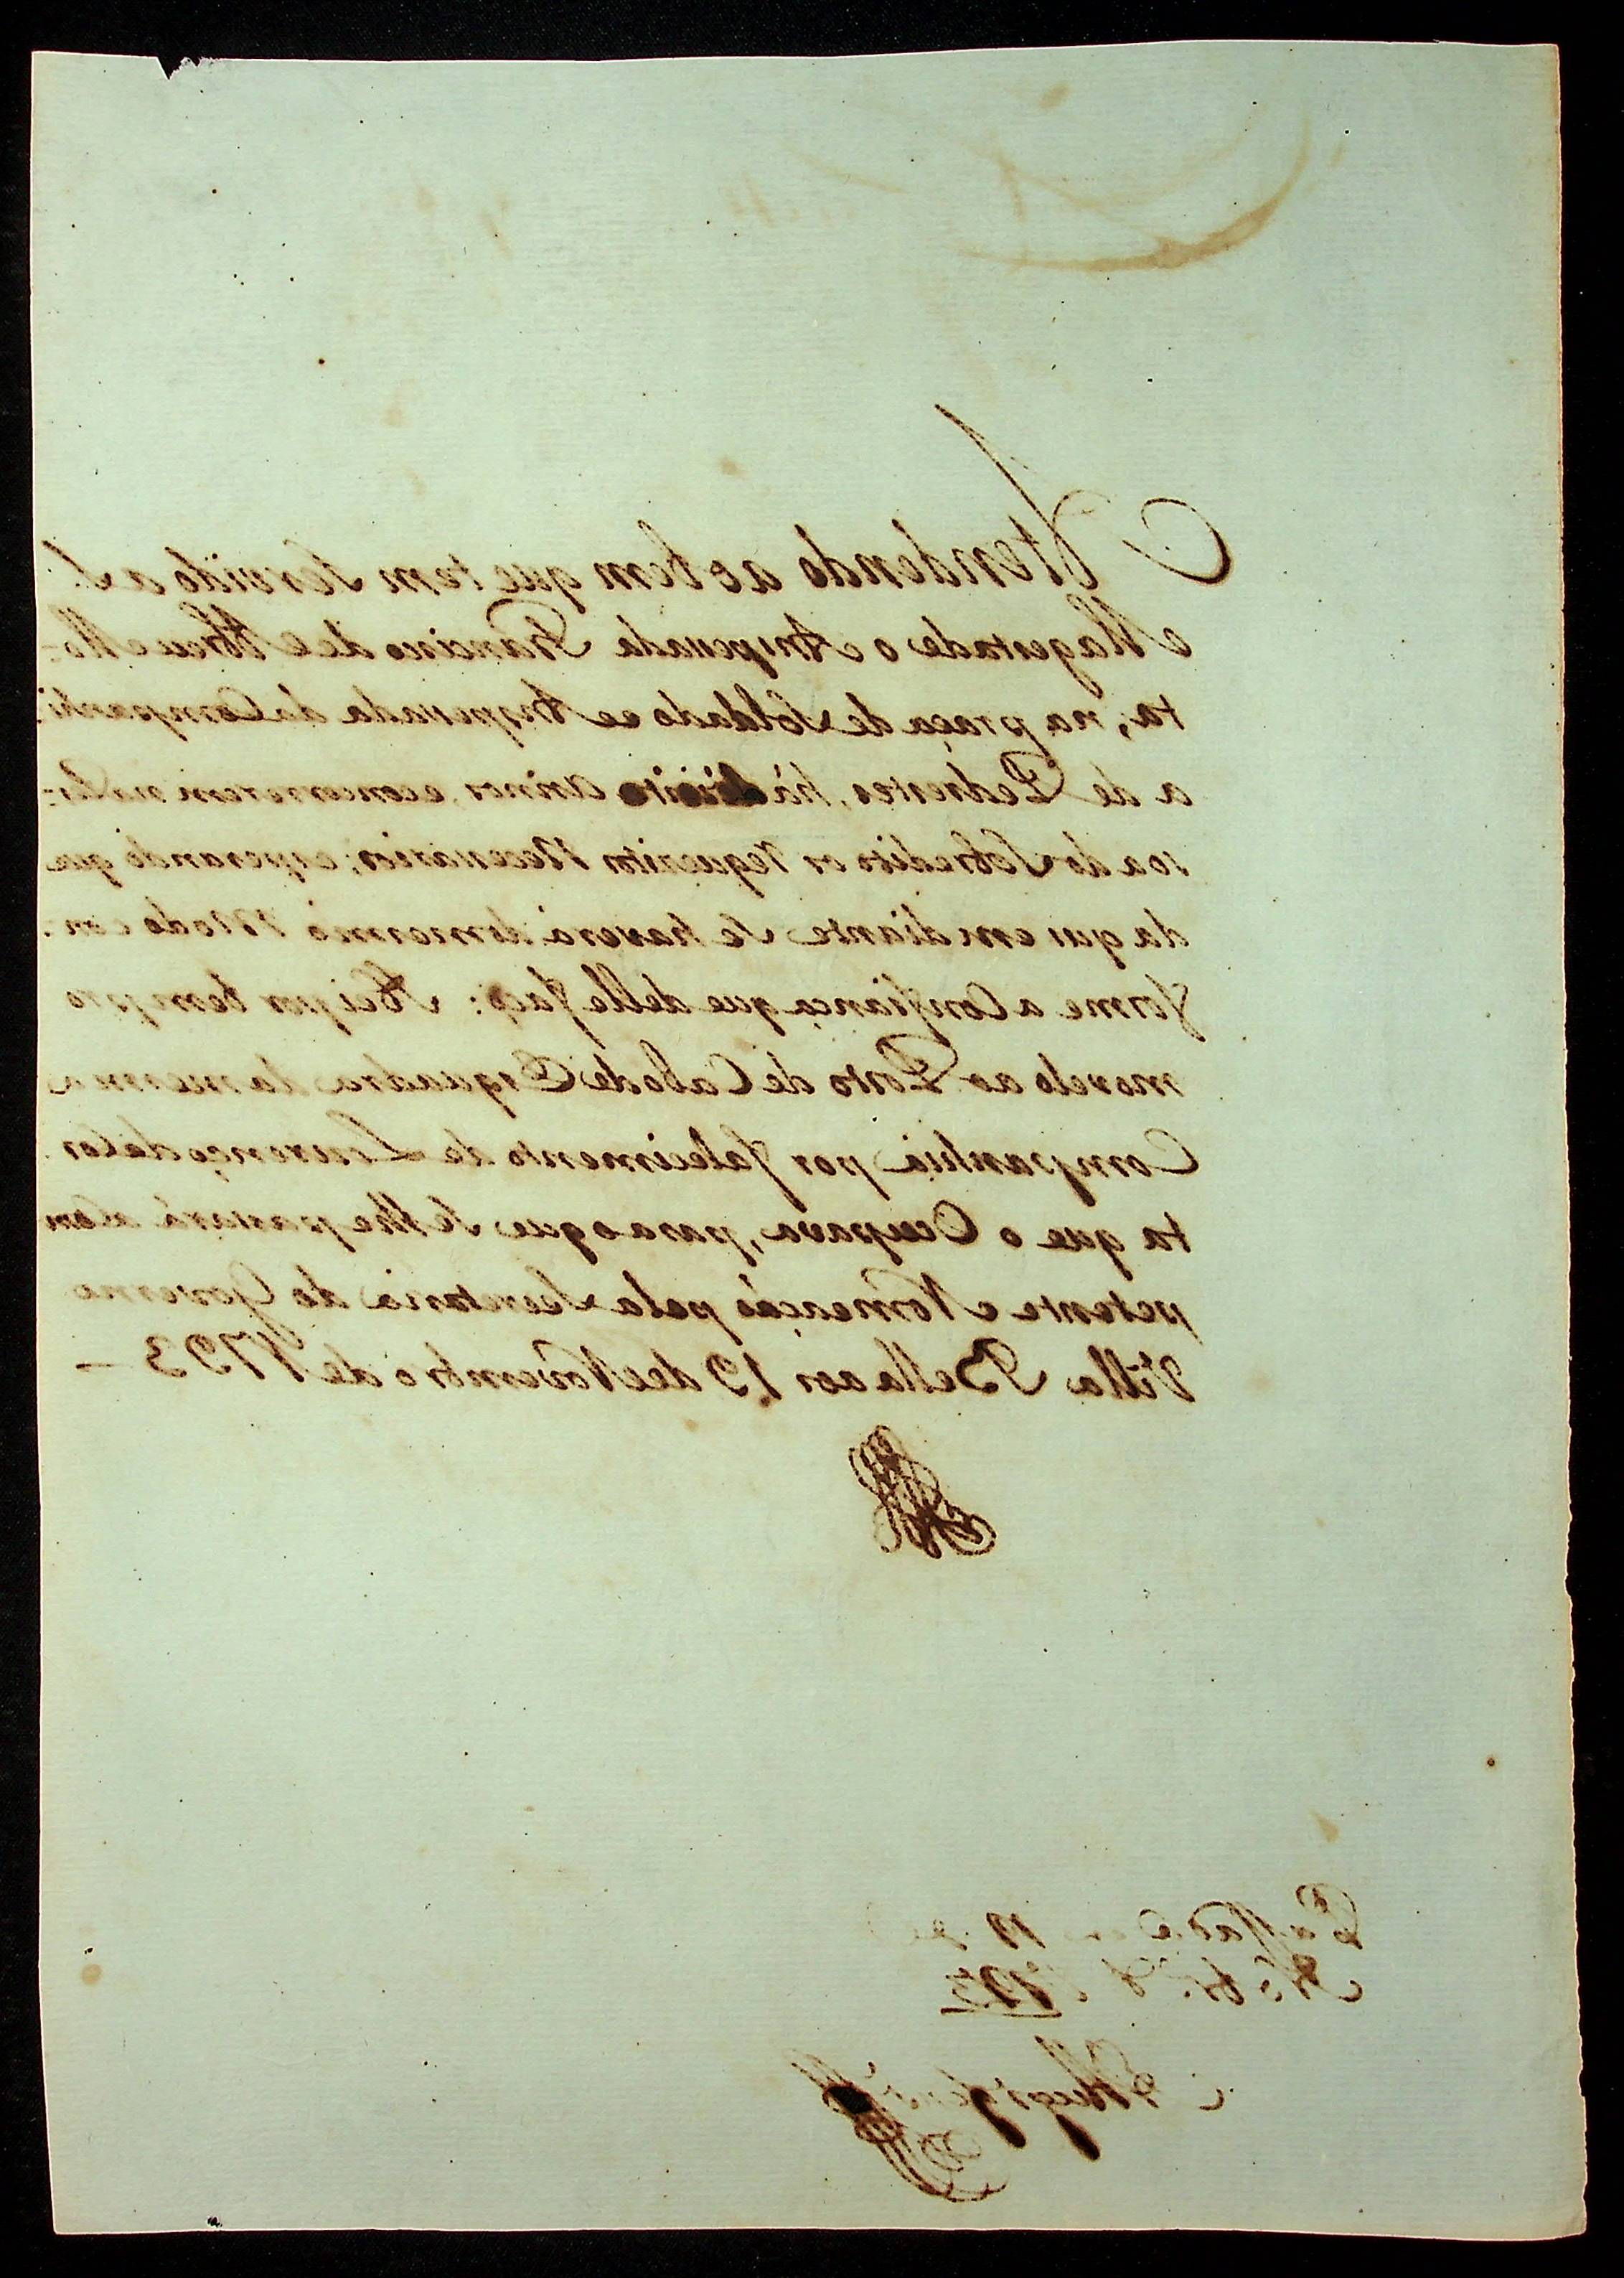 Attendendo ao bem que tem Servido a S.
Magestade o Anspessada Francisco de Abreu Mo-
ta, na praça de Soldado e Anspessada da Companhi-
a de Pedrestes, há dezoito annos, e concorrerem na Pes-
soa do Sobredito os requezitos Necessarios, esperando que
da qui em diante Se haverá do mesmo Modo con-
forme a Confiança que delle faço: Hei por bem pro
movelo ao Posto de Cabo de Esquadra da mesma
Companhia por falecimento de Lourenço da Cos
ta que o Occupava, para o que Se lhe passará a Com
petente Nomeação pela Secretaria do Governo
Villa Bella aos 19 de Novembro de 1793
Passada 19 de
1793